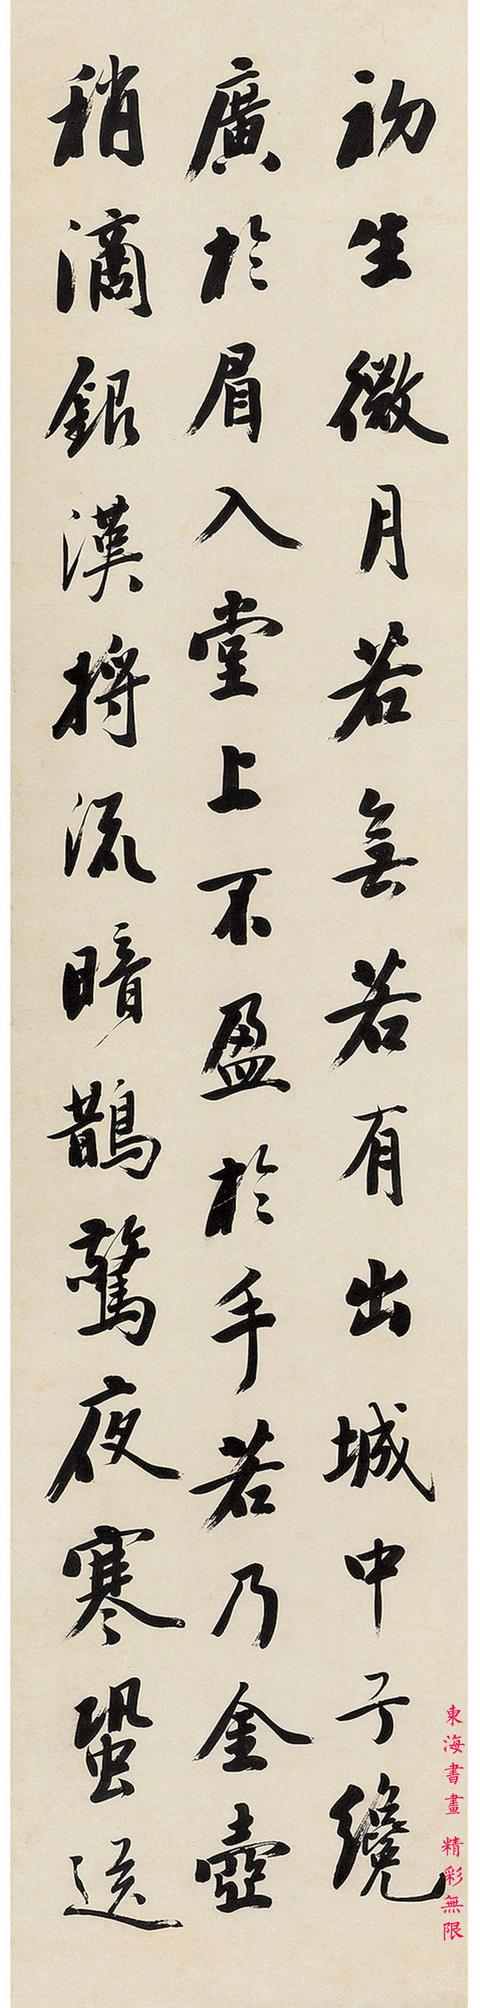 初生微月若無若有出城中予纔
廣於眉入堂上不盈於手若乃金壺
稍滴銀漢將流暗鵲驚夜寒蛩送
東海書畫 精彩無限